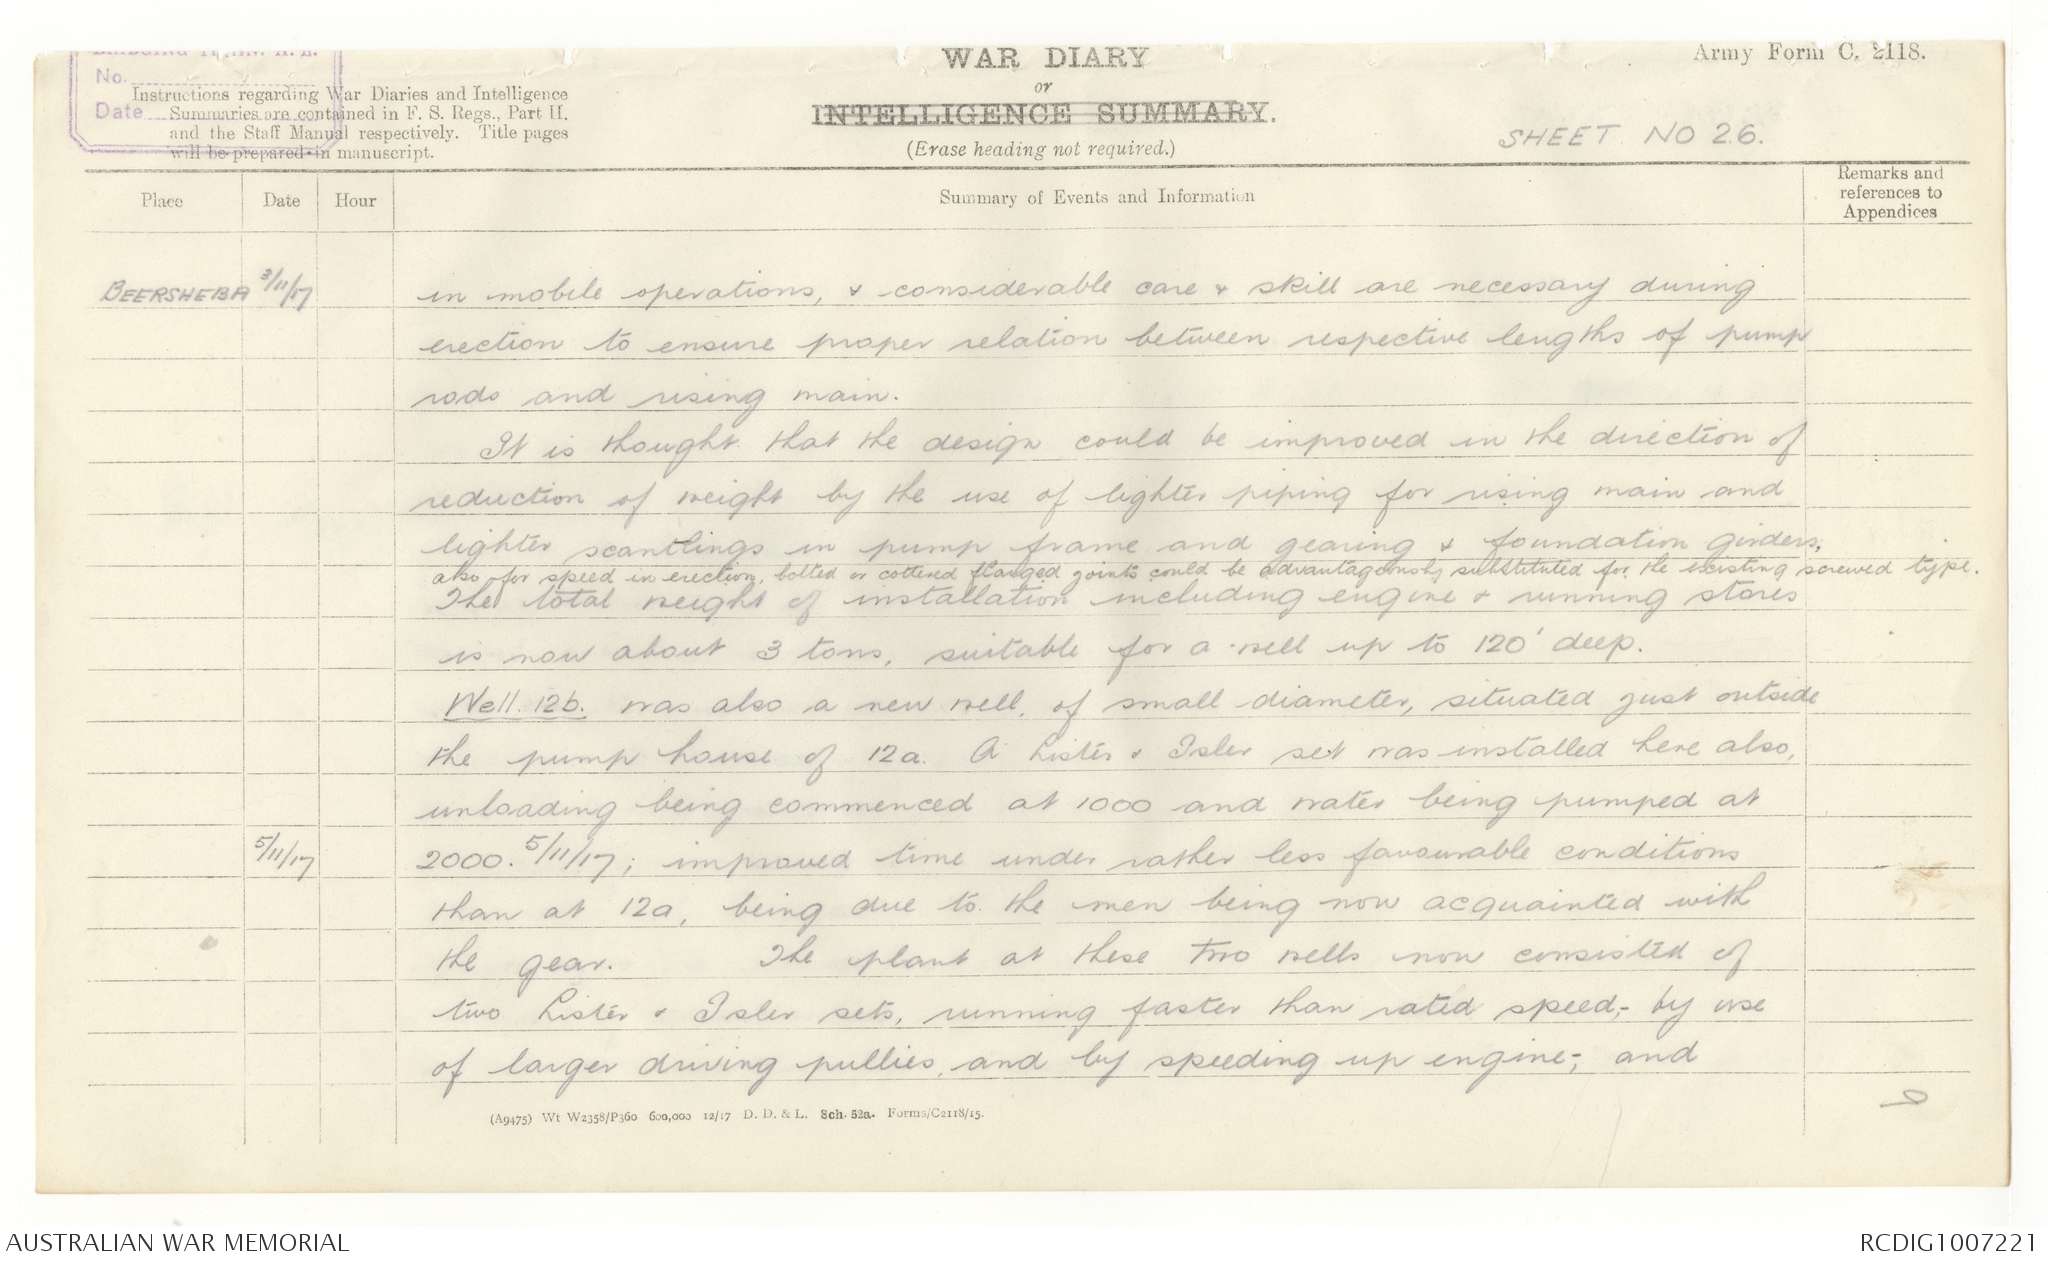 No.
Date
Instructions regarding War Diaries and Intelligence
Summaries are contained in F. S. Regs., Part II.
and the Staff Manual respectively. Title pages
will be prepared in manuscript.
WAR DIARY
or
INTELLIGENCE SUMMARY.
(Erase heading not required.)
Army Form C. 2118.
SHEET NO 26.
Place
Date
Hour
Summary of Events and Information
Remarks and
references to
Appendices
BEERSHEBA 3/11/17 in mobile operations, & considerable care & skill are necessary during
erection to ensure proper relation between respective lengths of pump
rods and rising main.
It is thought that the design could be improved in the direction of
reduction of weight by the use of lighter piping for rising main and
lighter scantlings in pump frame and gearing & foundation girders,
also for speed in erection, bolted or cottered flanged joints could be advantageously substituted for the existing screwed type.
The total weight of installation including engine & running stores
is now about 3 tons, suitable for a well up to 120' deep.
Well. 12b. was also a new well, of small diameter, situated just outside
the pump house of 12a. A Lister & Isler set was installed here also,
unloading being commenced at 1000 and water being pumped at
5/11/17 2000. 5/11/17; improved time under rather less favourable conditions
than at 12a, being due to the men being now acquainted with
the gear. The plant at these two wells now consisted of
two Lister & Isler sets, running faster than rated speed,- by use
of larger driving pullies, and by speeding up engine,- and
(A9475) Wt W2358/P360 600,000 12/17 D. D. & L. Sch. 52a. Forms/C2118/15.
AUSTRALIAN WAR MEMORIAL
RCDIG1007221